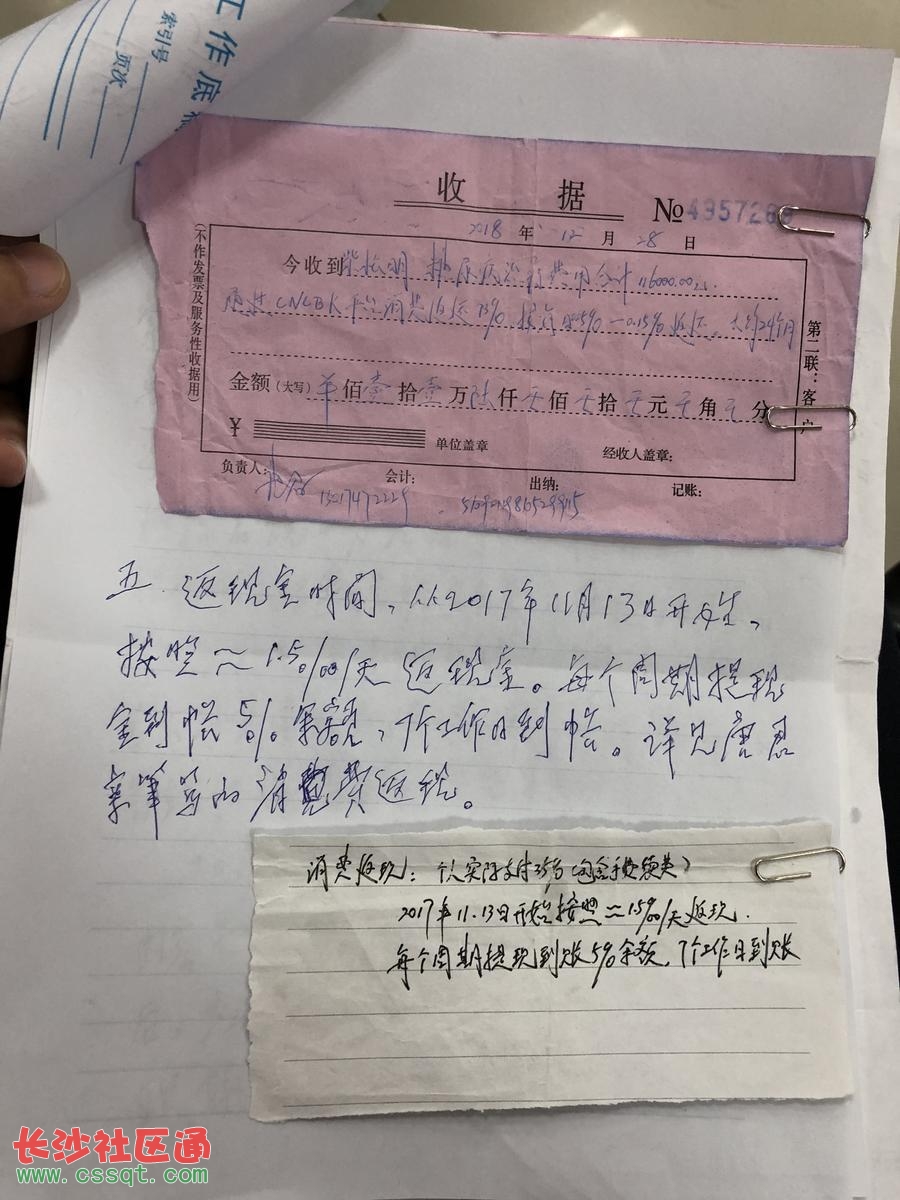 工作底
索引号
页次
收 据
№ 495728
2018 年 12 月 28 日
今收到 糖尿病治疗费用合计116000.00元
CNCBK平台消费返 75% 按 0.15%返还。大约24个月
金额(大写) 羊佰壹拾壹万陆仟 佰 拾 元 角 分
¥
单位盖章
经收人盖章:
负责人:
会计:
出纳:
记账:
(不作发票及服务性收据用)
第二联:客户
五、返现金时间,从2017年11月13日开始,
按照≈1.5‰/天返现金。每个周期提现
金到帐5%余额,7个工作日到帐。详见唐君
亲笔写的消费返现。
消费返现:个人实际支付35%(包含手续费类)
2017年11.13日开始按照≈1.5‰/天返现.
每个周期提现到账5%余额,7个工作日到账
长沙社区通
www.cssqt.com